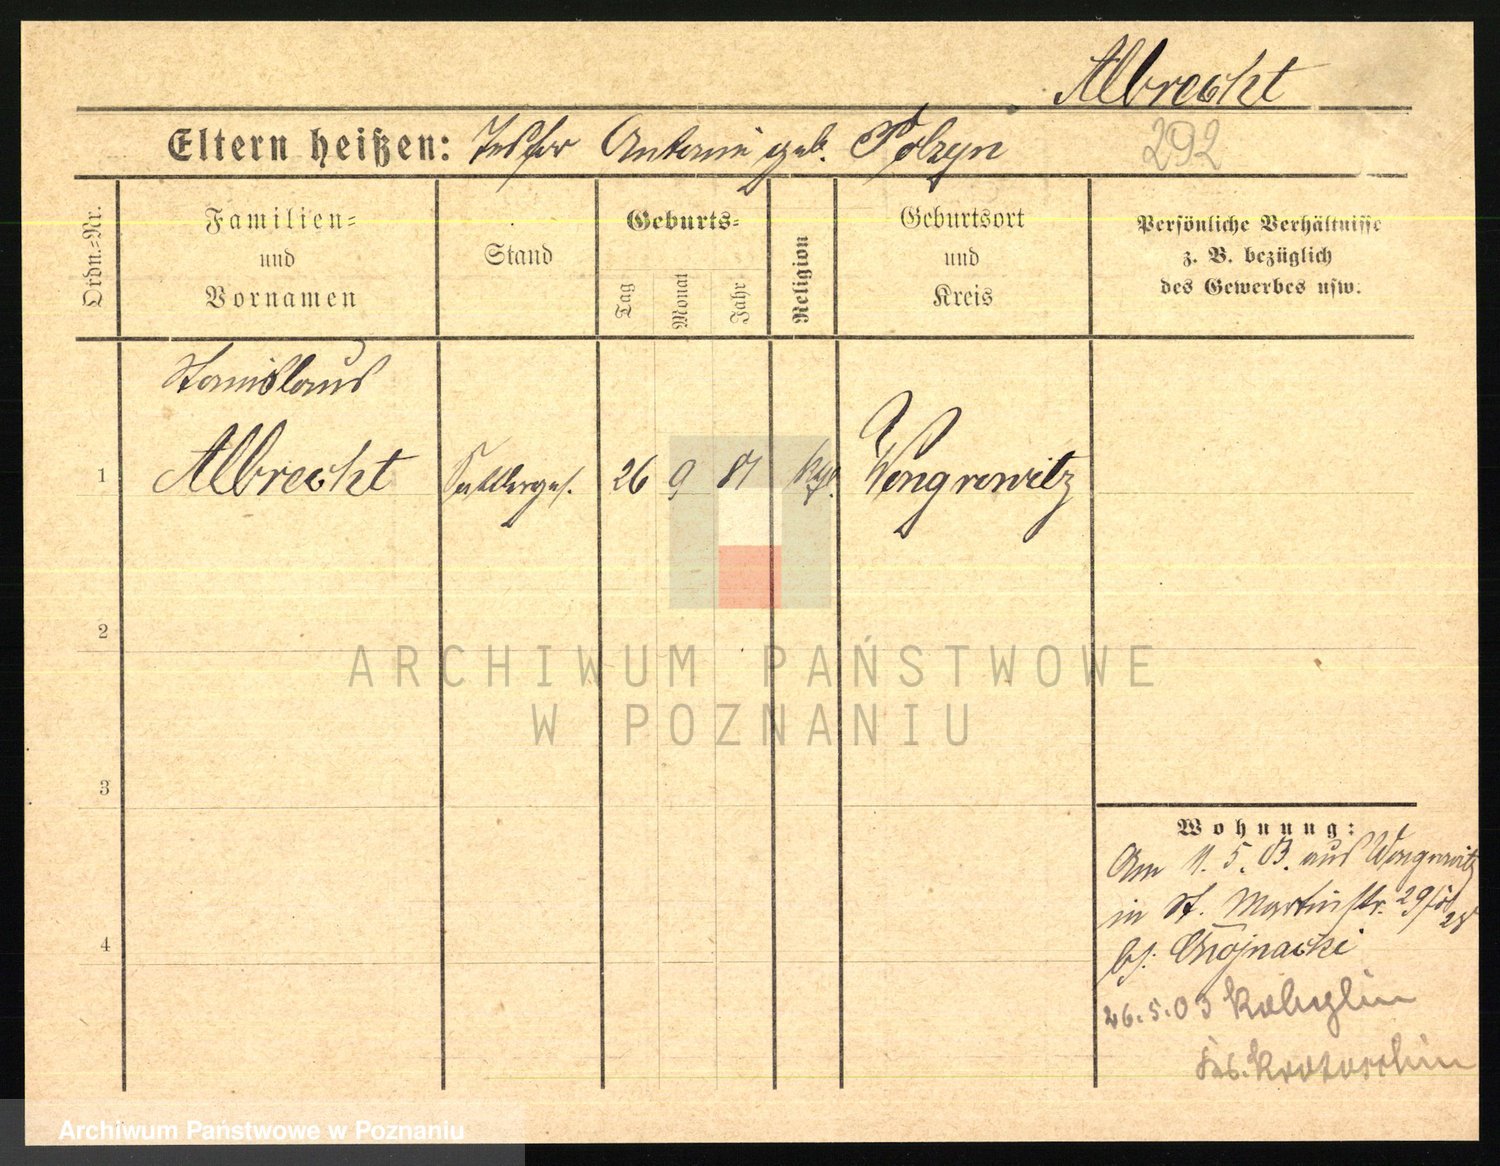 Albrecht
292
Eltern heißen: Antonie geb. Polzyn
Ordn.=Nr.
Familien=
und
Vornamen
Stand
Geburts=
Tag
Monat
Jahr
Religion
Geburtsort
und
Kreis
Persönliche Verhältnisse
z. B. bezüglich
des Gewerbes usw.
Stanislaus
1 Albrecht Sattlerges. 26 9 81 Wongrowitz
2
3
4
Wohnung:
Am 11. 5. 03. aus Wongrowitz
in St. Martinstr. 29
bs. Chojnacki
26.5.03 Kobylin
Krs. Krotoschin
ARCHIWUM PAŃSTWOWE
W POZNANIU
Archiwum Państwowe w Poznaniu